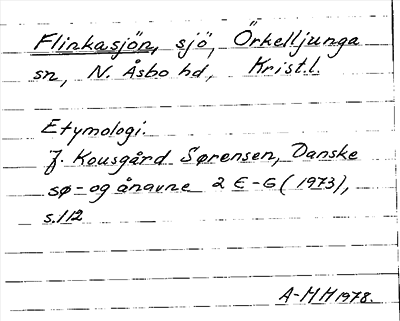 Flinkasjön, sjö, Örkelljunga
sn, N. Åsbo hd, Krist.l.
Etymologi.
J. Kousgård Sørensen, Danske
sø- og ånavne 2 E-G (1973),
s.112
A-MH 1978.